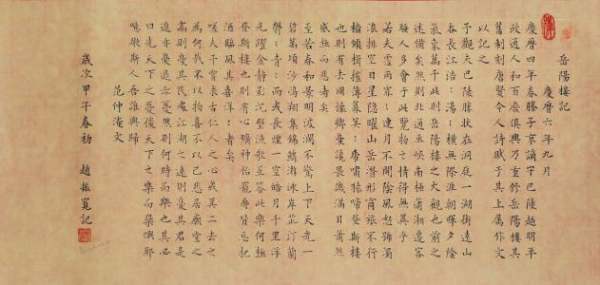 岳陽樓記
慶曆六年九月
慶曆四年春滕子京謫守巴陵越明年
政通人和百廢俱興乃重修岳陽樓其
舊制刻唐賢今人詩賦于其上屬作文
以記之
予觀夫巴陵勝狀在洞庭一湖銜遠山
吞長江浩〻湯〻橫無際涯朝暉夕陰
氣象萬千此則岳陽樓之大觀也前之
述備矣然則北通巫峽南極瀟湘遷客
騷人多會于此覽物之情得無異乎
若夫霪雨霏〻連月不開陰風怒號濁
浪排空日星隱曜山岳潛形商旅不行
檣傾楫摧薄暮冥〻虎嘯猿啼登斯樓
也則有去國懷鄉憂讒畏譏滿目蕭然
感極而悲者矣
至若春和景明波瀾不驚上下天光一
碧萬頃沙鷗翔集錦鱗游泳岸芷汀蘭
郁〻青〻而或長煙一空皓月千里浮
光躍金靜影沉璧漁歌互答此樂何極
登斯樓也則有心曠神怡寵辱皆忘把
酒臨風其喜洋〻者矣
嗟夫予嘗求古仁人之心或異二者之
為何哉不以物喜不以己悲居廟堂之
高則憂其民處江湖之遠則憂其君是
進亦憂退亦憂然則何時而樂也其必
曰先天下之憂後天下之樂而樂耶
噫微斯人吾誰與歸
范仲淹文
歲次甲午春初 趙振寬記